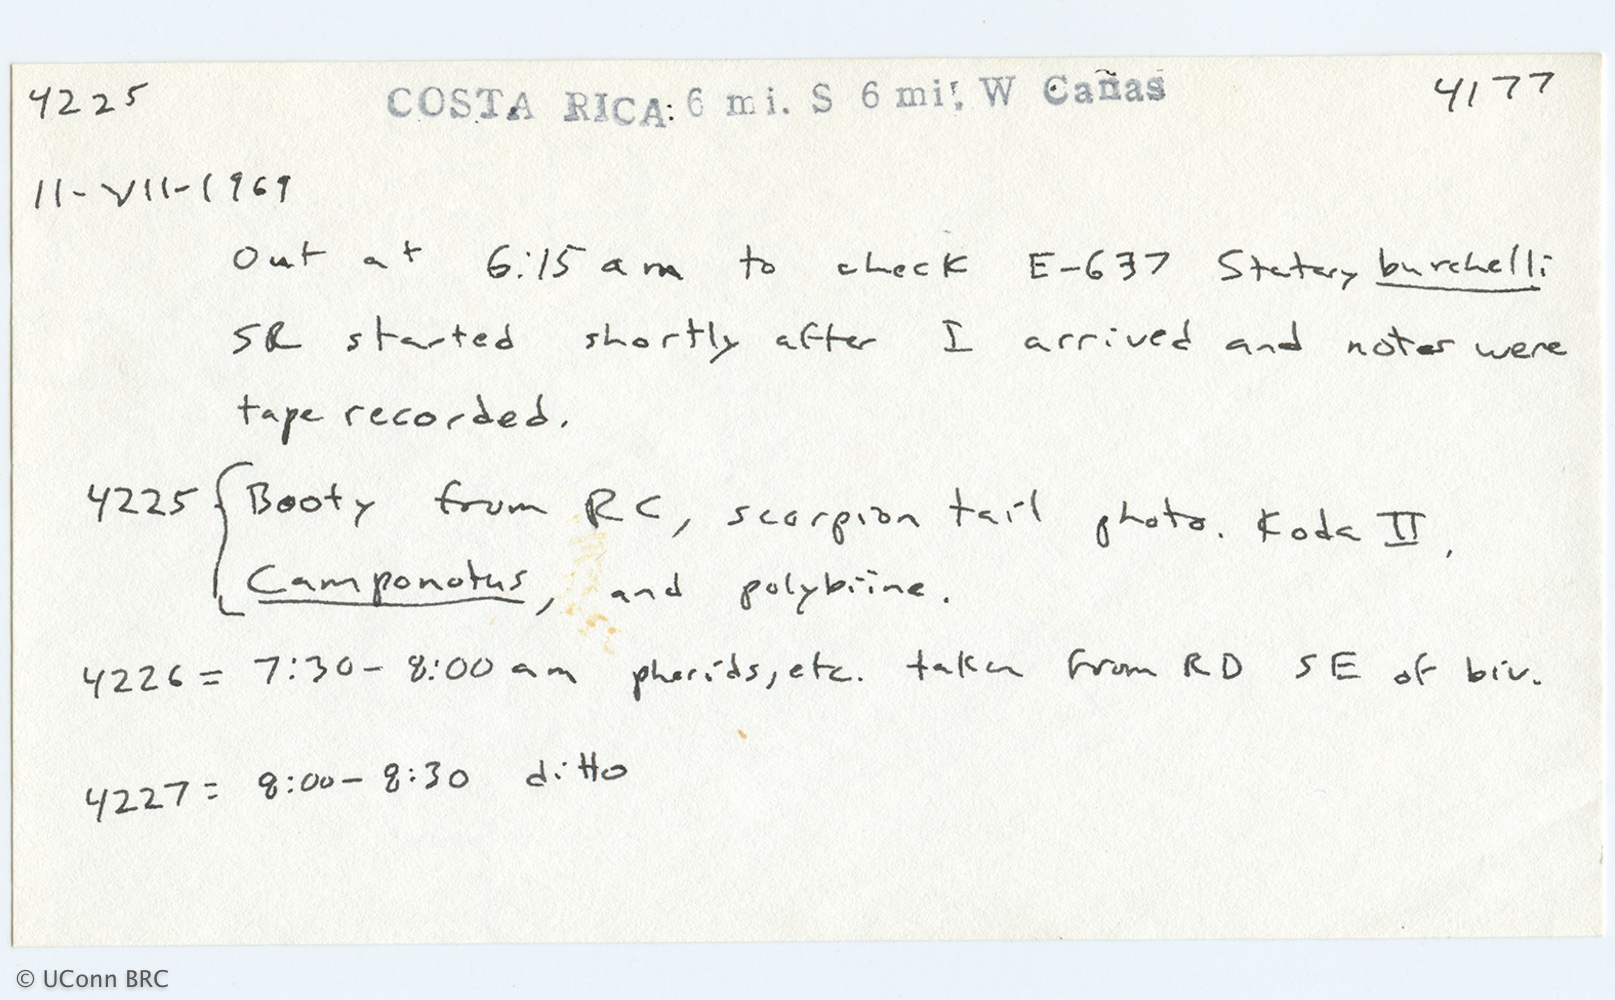 4225 COSTA RICA: 6 mi. S 6 mi. W Cañas 4177
11-VII-1969
Out at 6:15 am to check E-637 Statary burchelli
SR started shortly after I arrived and notes were
tape recorded.
4225 { Booty from RC, scorpion tail photo. Koda II,
Camponotus, and polybiine.
4226 = 7:30-8:00 am phorids, etc. taken from RD SE of biv.
4227 = 8:00-8:30 ditto
© UConn BRC